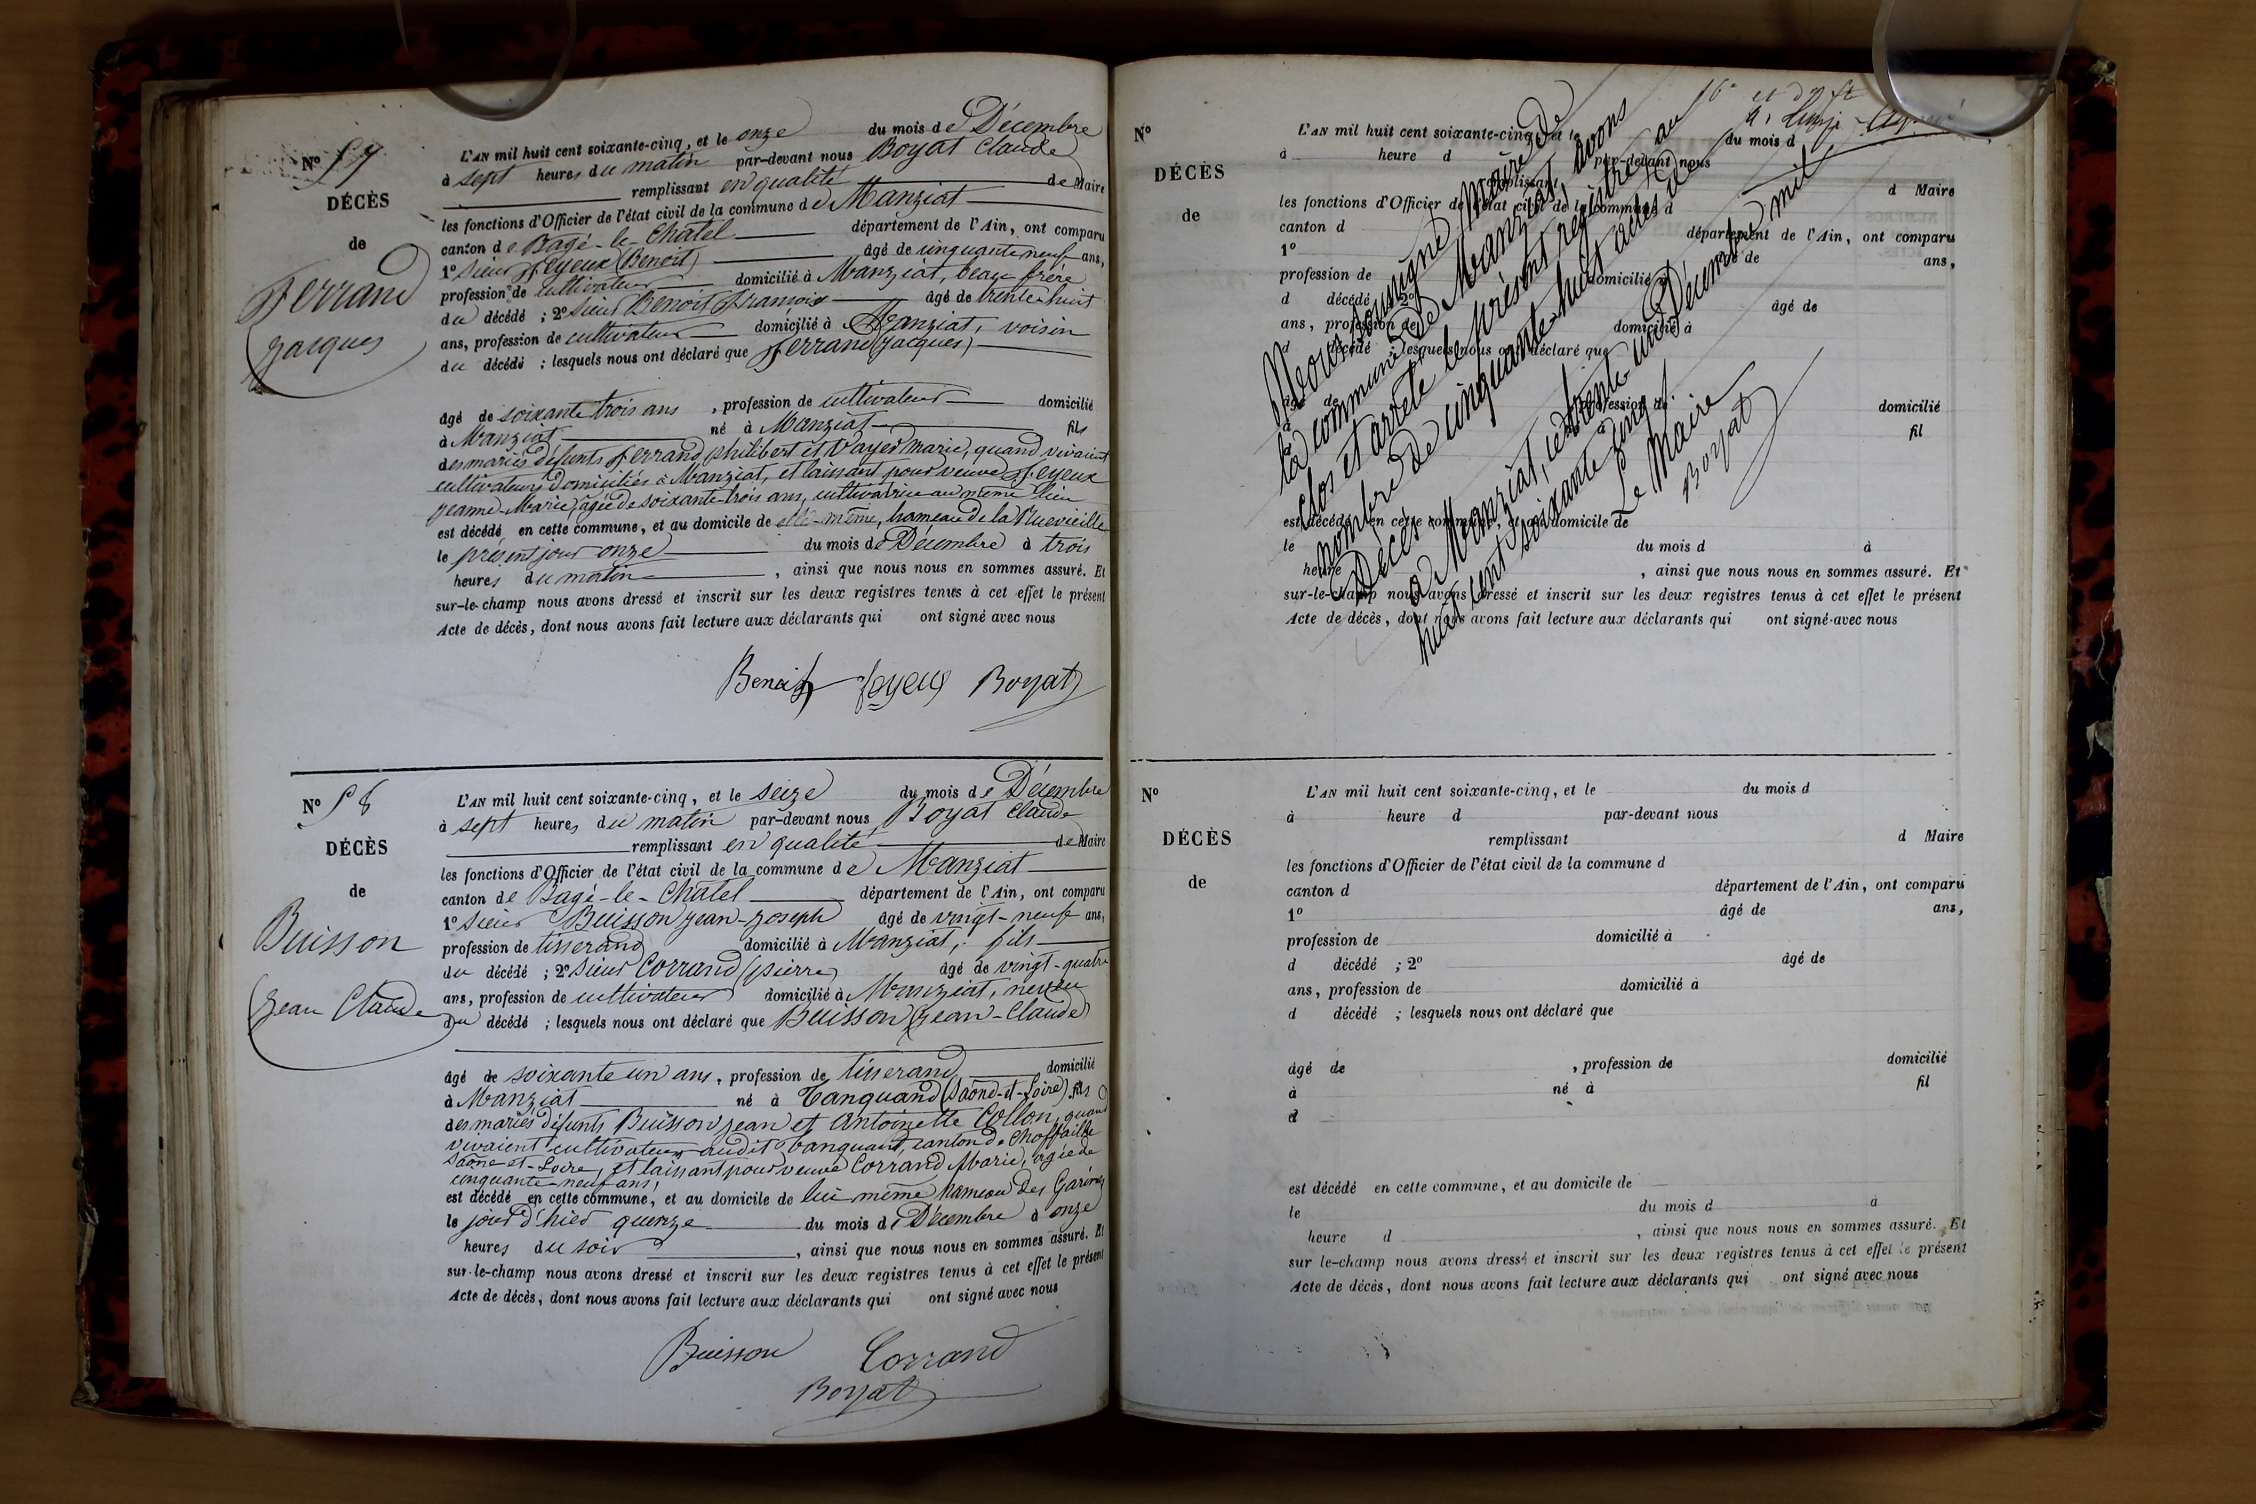 N° 57
DÉCÈS
de
Ferrand
Jacques
L'AN mil huit cent soixante-cinq, et le onze du mois de Décembre
à sept heures du matin par-devant nous Boyat Claude
remplissant en qualité de Maire
les fonctions d'Officier de l'état civil de la commune de Manziat
canton de Bagé-le-Châtel département de l'Ain, ont comparu
1° Sieur Feyeux (Benoit) âgé de cinquante neuf ans,
profession de cultivateur domicilié à Manziat, beau frère
du décédé ; 2° Sieur Benoit François âgé de trente huit
ans, profession de cultivateur domicilié à Manziat, voisin
du décédé ; lesquels nous ont déclaré que Ferrand (Jacques)
âgé de soixante trois ans, profession de cultivateur domicilié
à Manziat né à Manziat fils
des mariés défunts Ferrand Philibert et Vayer Marie, quand vivaient
cultivateurs domiciliés à Manziat, et laissant pour veuve Feyeux
Jeanne-Marie, agée de soixante-trois ans, cultivatrice au même lieu
est décédé en cette commune, et au domicile de même, hameau de la
le présent jour onze du mois de Décembre à trois
heures du matin, ainsi que nous nous en sommes assuré. Et
sur-le-champ nous avons dressé et inscrit sur les deux registres tenus à cet effet le présent
Acte de décès, dont nous avons fait lecture aux déclarants qui ont signé avec nous
Benoit feyeux Boyat
N° 58
DÉCÈS
de
Buisson
Jean Claude
L'AN mil huit cent soixante-cinq, et le seize du mois de Décembre
à sept heures du matin par-devant nous Boyat Claude
remplissant en qualité de Maire
les fonctions d'Officier de l'état civil de la commune de Manziat
canton de Bagé-le-Châtel département de l'Ain, ont comparu
1° Sieur Buisson Jean-Joseph âgé de vingt-neuf ans,
profession de tisserand domicilié à Manziat, fils
du décédé ; 2° Sieur Corrand (Pierre) âgé de vingt-quatre
ans, profession de cultivateur domicilié à Manziat, neveu
du décédé ; lesquels nous ont déclaré que Buisson (Jean-Claude)
âgé de soixante un ans, profession de tisserand domicilié
à Manziat né à Tanquand (Saône-et-Loire) fils
des mariés défunts Buisson Jean et Antoinette Collon, quand
vivaient cultivateurs audit Tanquand, canton de Choffaille
Saône-et-Loire, et laissant pour veuve Corrand Marie, agée de
cinquante-neuf ans,
est décédé en cette commune, et au domicile de lui même hameau des
le jour d'hier quinze du mois de Décembre à onze
heures du soir, ainsi que nous nous en sommes assuré. Et
sur-le-champ nous avons dressé et inscrit sur les deux registres tenus à cet effet le présent
Acte de décès, dont nous avons fait lecture aux déclarants qui ont signé avec nous
Buisson Corrand
Boyat
N°
DÉCÈS
de
L'AN mil huit cent soixante-cinq, et le du mois d
à heure d par-devant nous
remplissant d Maire
les fonctions d'Officier de l'état civil de la commune d
canton d département de l'Ain, ont comparu
1° âgé de ans,
profession de domicilié à
d décédé ; 2° âgé de
ans, profession de domicilié à
d décédé ; lesquels nous ont déclaré que
âgé de profession de domicilié
à né à fil
est décédé en cette commune, et au domicile de
le du mois d à
heure , ainsi que nous nous en sommes assuré. Et
sur-le-champ nous avons dressé et inscrit sur les deux registres tenus à cet effet le présent
Acte de décès, dont nous avons fait lecture aux déclarants qui ont signé avec nous
Nous soussigné Maire de
la commune de Manziat, avons
clos et arrêté le présent registre au
nombre de cinquante-huit actes de
Décès
à Manziat, ce trente un Décembre mil
huit cent soixante cinq.
Le Maire
Boyat
N°
DÉCÈS
de
L'AN mil huit cent soixante-cinq, et le du mois d
à heure d par-devant nous
remplissant d Maire
les fonctions d'Officier de l'état civil de la commune d
canton d département de l'Ain, ont comparu
1° âgé de ans,
profession de domicilié à
d décédé ; 2° âgé de
ans, profession de domicilié à
d décédé ; lesquels nous ont déclaré que
âgé de , profession de domicilié
à né à fil
d
est décédé en cette commune, et au domicile de
le du mois d à
heure d , ainsi que nous nous en sommes assuré. Et
sur le-champ nous avons dressé et inscrit sur les deux registres tenus à cet effet le présent
Acte de décès, dont nous avons fait lecture aux déclarants qui ont signé avec nous